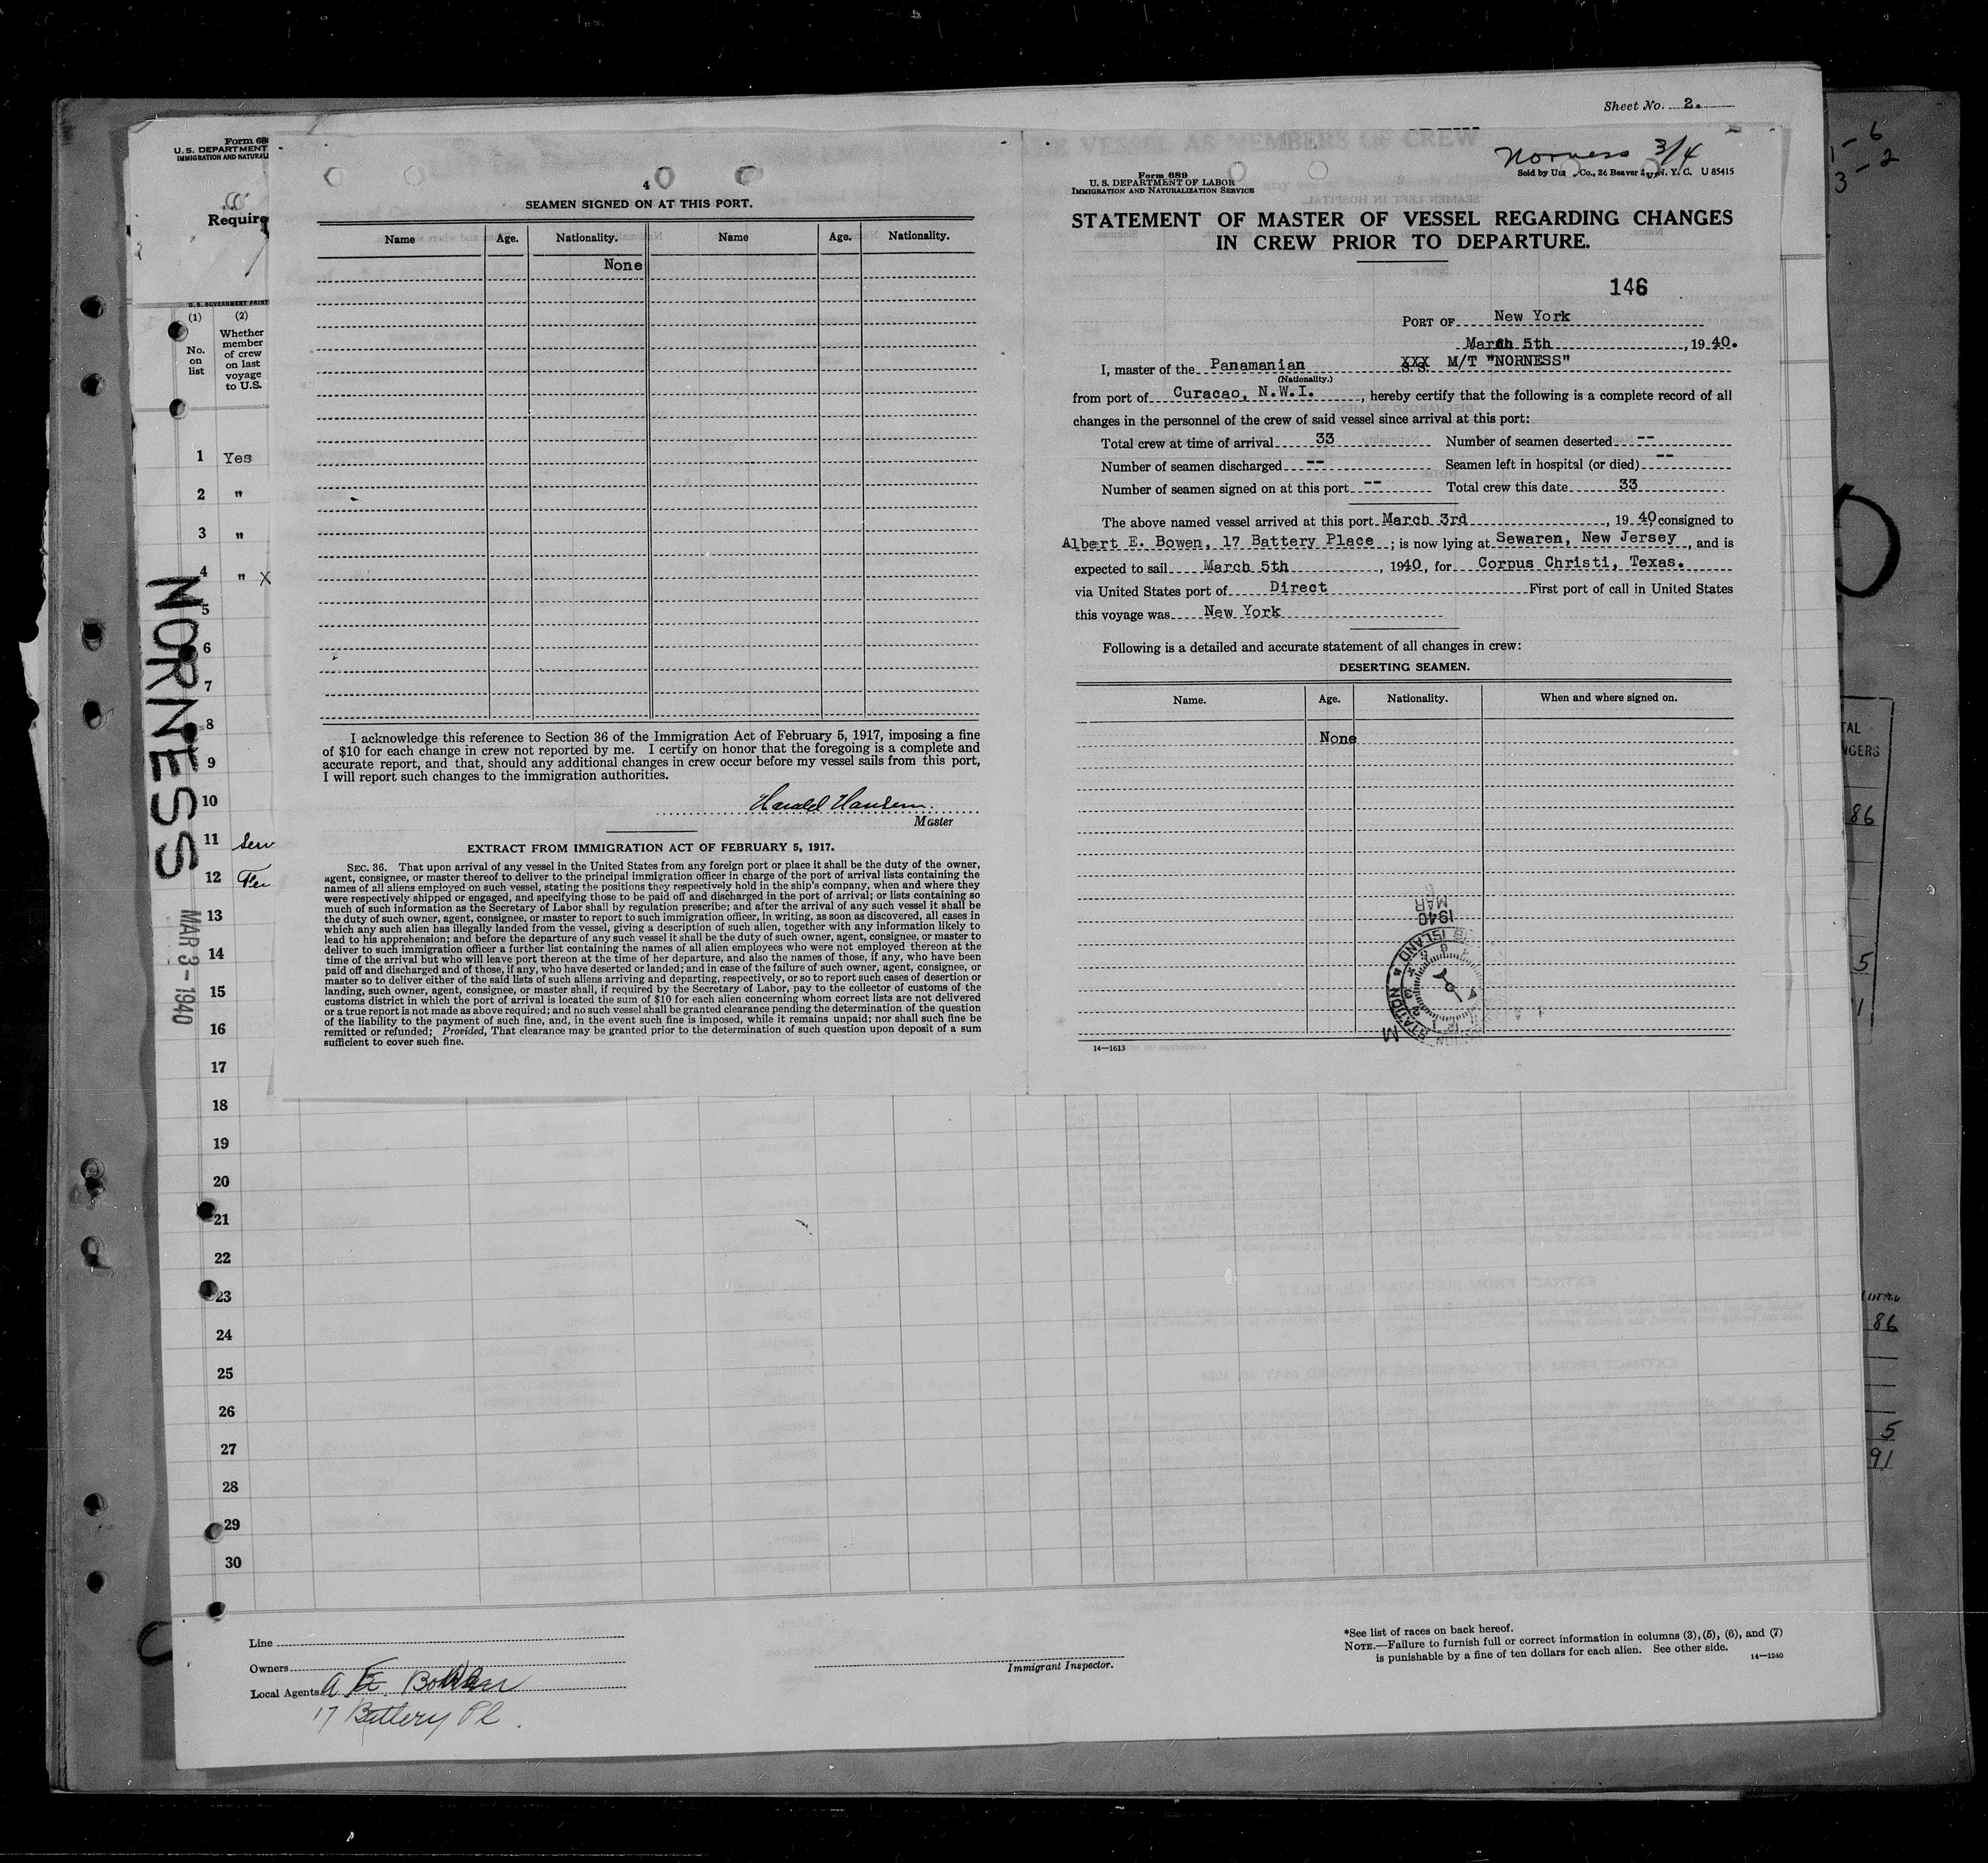 Sheet No. 2.
Form 68
U. S. DEPARTMENT
IMMIGRATION AND NATURALI
Require
U. S. GOVERNMENT PRINT
(1)
(2)
No. on list
Whether member of crew on last voyage to U.S.
1 Yes
2 "
3 "
4 " X
5
6
7
8
9
10
11 Serv
12
13
14
15
16
17
18
19
20
21
22
23
24
25
26
27
28
29
30
NORNESS
MAR 3 - 1940
4
SEAMEN SIGNED ON AT THIS PORT.
Name Age. Nationality. Name Age. Nationality.
None
I acknowledge this reference to Section 36 of the Immigration Act of February 5, 1917, imposing a fine
of $10 for each change in crew not reported by me. I certify on honor that the foregoing is a complete and
accurate report, and that, should any additional changes in crew occur before my vessel sails from this port,
I will report such changes to the immigration authorities.
Harald Hansen.
Master
EXTRACT FROM IMMIGRATION ACT OF FEBRUARY 5, 1917.
SEC. 36. That upon arrival of any vessel in the United States from any foreign port or place it shall be the duty of the owner,
agent, consignee, or master thereof to deliver to the principal immigration officer in charge of the port of arrival lists containing the
names of all aliens employed on such vessel, stating the positions they respectively hold in the ship's company, when and where they
were respectively shipped or engaged, and specifying those to be paid off and discharged in the port of arrival; or lists containing so
much of such information as the Secretary of Labor shall by regulation prescribe; and after the arrival of any such vessel it shall be
the duty of such owner, agent, consignee, or master to report to such immigration officer, in writing, as soon as discovered, all cases in
which any such alien has illegally landed from the vessel, giving a description of such alien, together with any information likely to
lead to his apprehension; and before the departure of any such vessel it shall be the duty of such owner, agent, consignee, or master to
deliver to such immigration officer a further list containing the names of all alien employees who were not employed thereon at the
time of the arrival but who will leave port thereon at the time of her departure, and also the names of those, if any, who have been
paid off and discharged and of those, if any, who have deserted or landed; and in case of the failure of such owner, agent, consignee, or
master so to deliver either of the said lists of such aliens arriving and departing, respectively, or so to report such cases of desertion or
landing, such owner, agent, consignee, or master shall, if required by the Secretary of Labor, pay to the collector of customs of the
customs district in which the port of arrival is located the sum of $10 for each alien concerning whom correct lists are not delivered
or a true report is not made as above required; and no such vessel shall be granted clearance pending the determination of the question
of the liability to the payment of such fine, and, in the event such fine is imposed, while it remains unpaid; nor shall such fine be
remitted or refunded; Provided, That clearance may be granted prior to the determination of such question upon deposit of a sum
sufficient to cover such fine.
Norness 3/4
Form 689
U. S. DEPARTMENT OF LABOR
IMMIGRATION AND NATURALIZATION SERVICE
Sold by Co., 24 Beaver N. Y. C. U 85415
STATEMENT OF MASTER OF VESSEL REGARDING CHANGES
IN CREW PRIOR TO DEPARTURE.
146
PORT OF New York
March 5th, 1940.
I, master of the Panamanian XXX M/T "NORNESS"
(Nationality.)
from port of Curacao, N.W.I., hereby certify that the following is a complete record of all
changes in the personnel of the crew of said vessel since arrival at this port:
Total crew at time of arrival 33 Number of seamen deserted --
Number of seamen discharged -- Seamen left in hospital (or died) --
Number of seamen signed on at this port -- Total crew this date 33
The above named vessel arrived at this port March 3rd, 1940 consigned to
Albert E. Bowen, 17 Battery Place; is now lying at Sewaren, New Jersey, and is
expected to sail March 5th, 1940, for Corpus Christi, Texas.
via United States port of Direct First port of call in United States
this voyage was New York
Following is a detailed and accurate statement of all changes in crew:
DESERTING SEAMEN.
Name. Age. Nationality. When and where signed on.
None
MAR
1940
14—1613
Line
Owners
Local Agents A E. Bowen
17 Battery Pl.
Immigrant Inspector.
*See list of races on back hereof.
NOTE.—Failure to furnish full or correct information in columns (3), (5), (6), and (7)
is punishable by a fine of ten dollars for each alien. See other side.
14—1240
1 - 6
3 - 2
TAL
NGERS
86
5
1
86
5
91